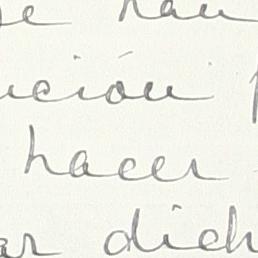 se han
ución p
hacer
ar dich